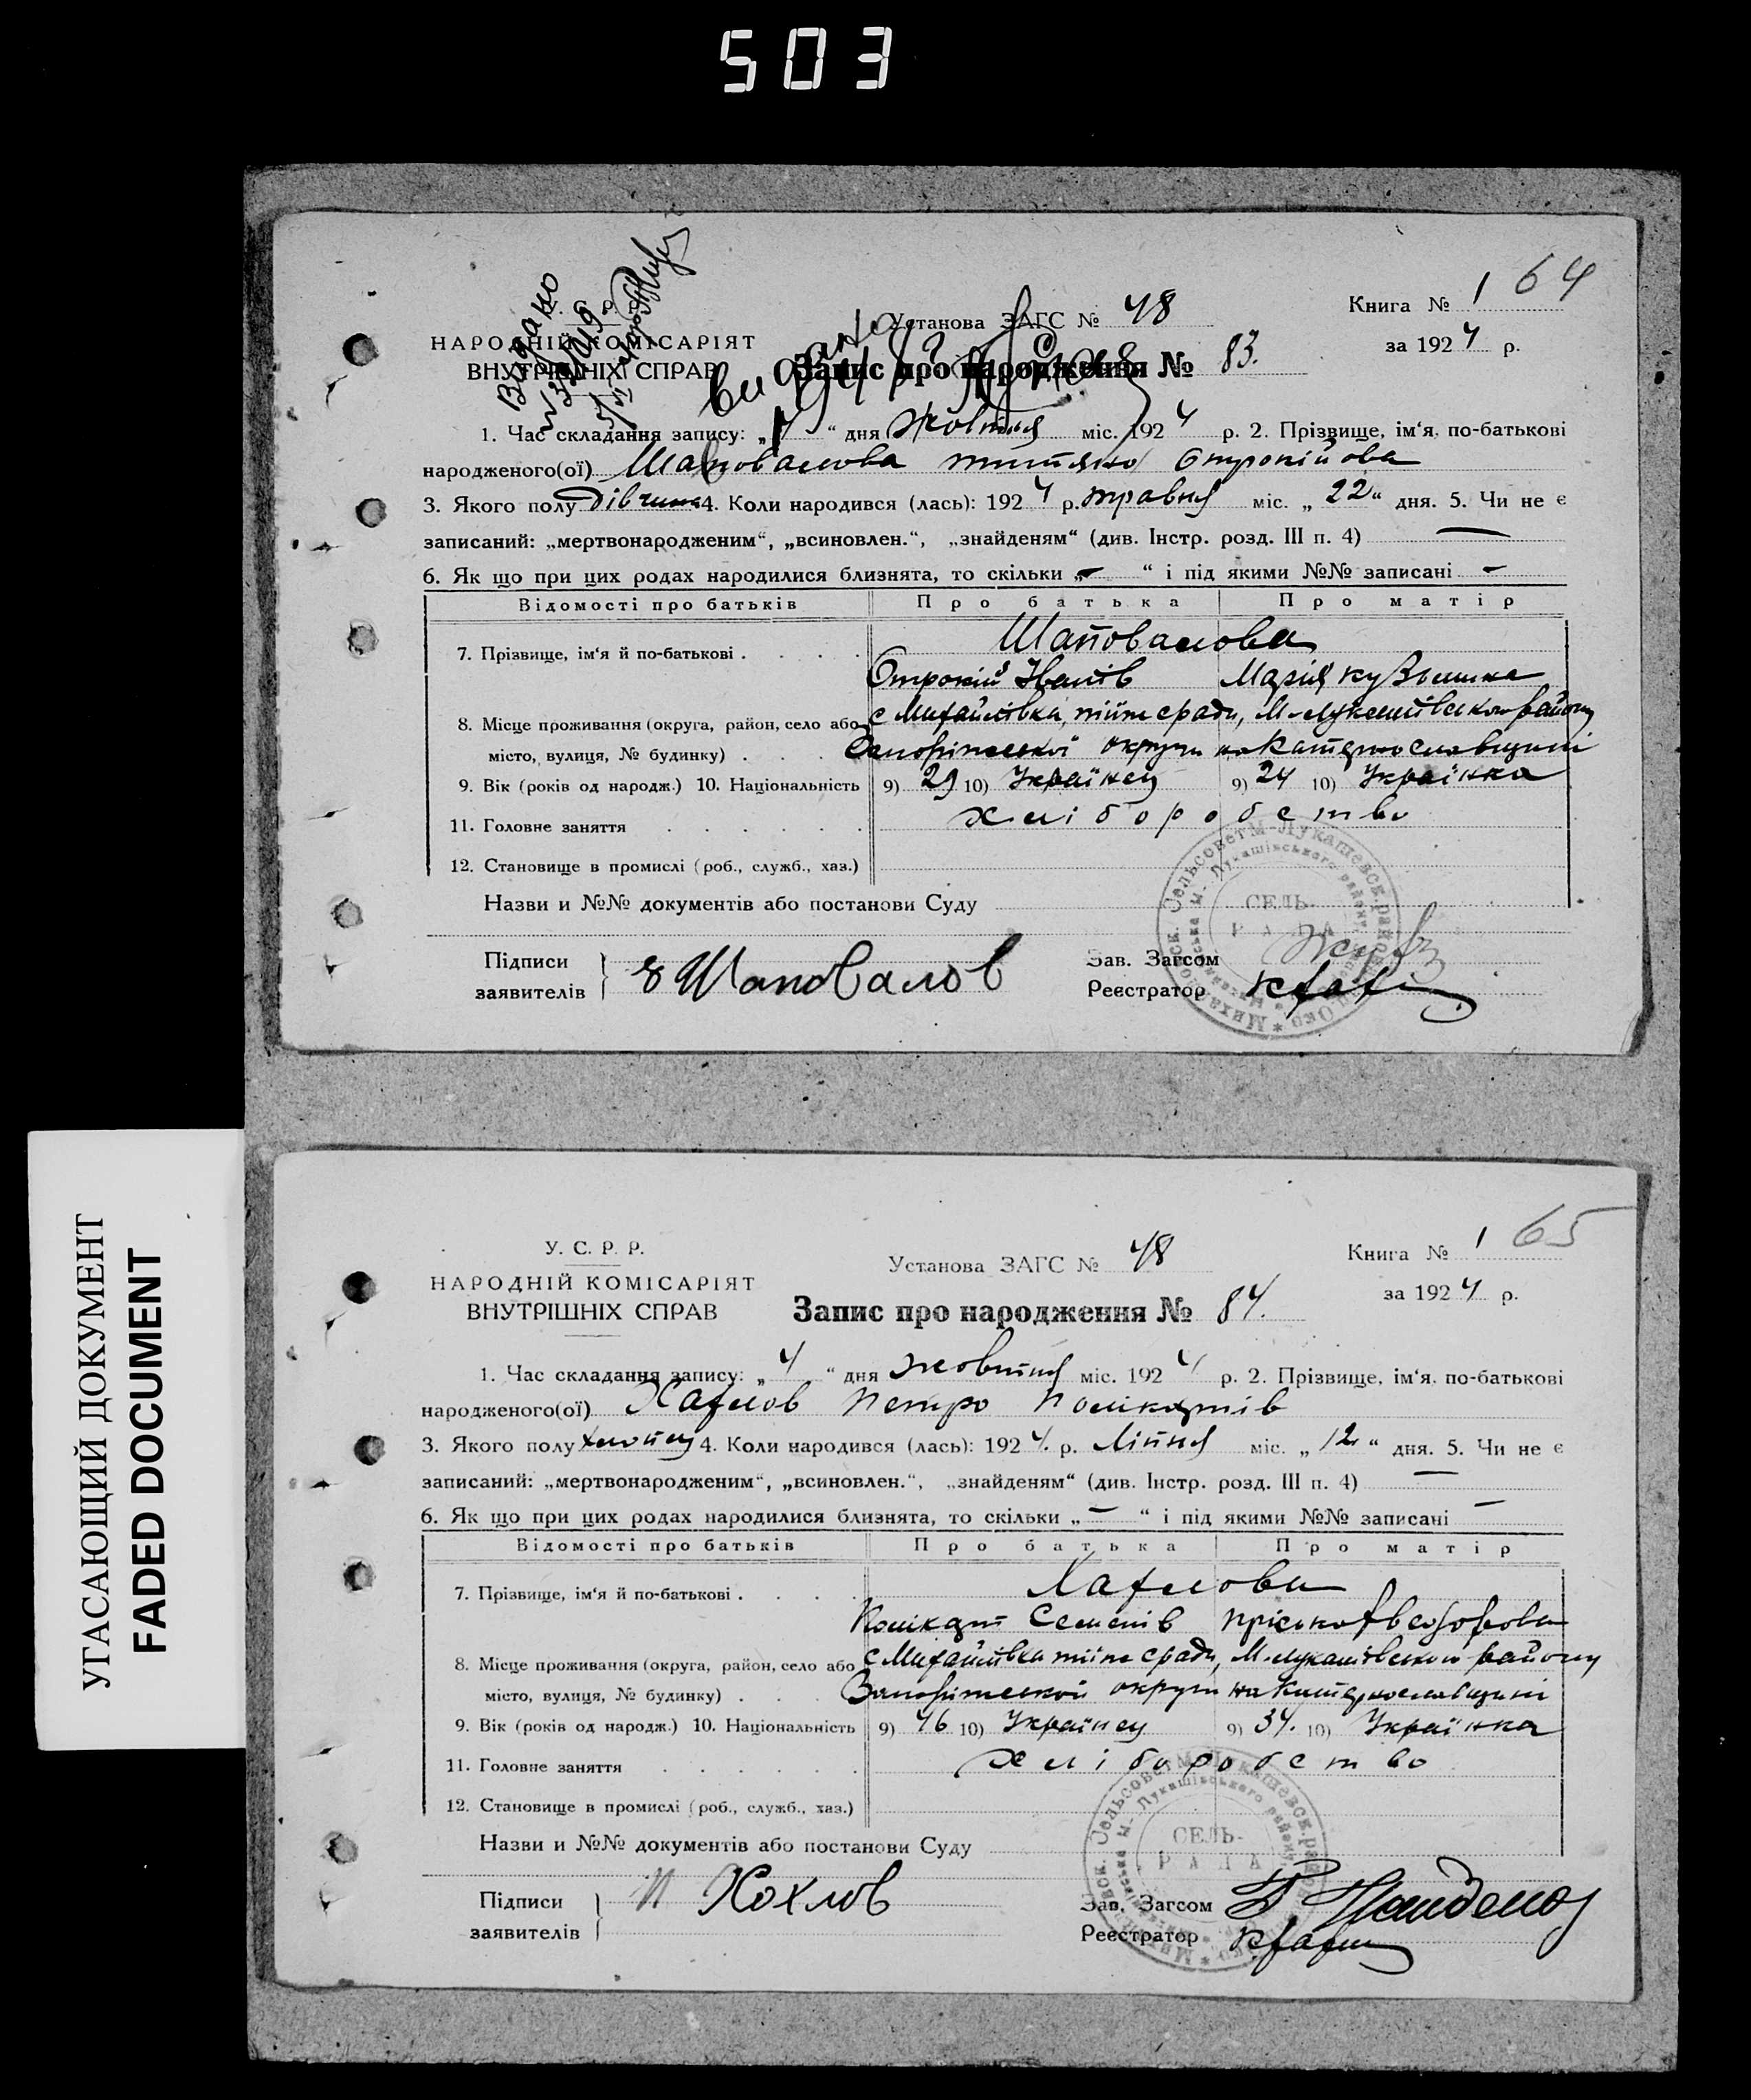 503
1 64
У. С. Р. Р.
НАРОДНІЙ КОМІСАРІЯТ
ВНУТРІШНІХ СПРАВ
Видано
Установа ЗАГС № 48
Книга №
за 1924 р.
Запис про народження № 83.
1. Час складання запису: „4“ дня жовтня міс. 1924 р. 2. Прізвище, ім‘я, по-батькові
народженого(ої) Шаповалова
3. Якого полу дівчина 4. Коли народився (лась): 1924 р. травня міс. „22“ дня. 5. Чи не є
записаний: „мертвонародженим“, „всиновлен.“, „знайденям“ (див. Інстр. розд. III п. 4) —
6. Як що при цих родах народилися близнята, то скільки „—“ і під якими №№ записані —
Відомості про батьків Про батька Про матір
Шаповалова
7. Прізвище, ім‘я й по-батькові . . . .
Іванів Марія
8. Місце проживання (округа, район, село або с Михайлівка, району
місто, вулиця, № будинку) . . . Запоріжської округи на Катеринославщині
9. Вік (років од народж.) 10. Національність 9) 29 10) Українец 9) 24 10) Українка
11. Головне заняття . . . . . . хліборобство
12. Становище в промислі (роб., служб., хаз.)
Назви и №№ документів або постанови Суду
СЕЛЬ-
РАДА
Підписи
заявителів
Шаповалов
Зав. Загсом
Реєстратор
1 65
У. С. Р. Р.
НАРОДНІЙ КОМІСАРІЯТ
ВНУТРІШНІХ СПРАВ
Установа ЗАГС № 48
Книга №
за 1924 р.
Запис про народження № 84.
1. Час складання запису: „4“ дня жовтня міс. 1924 р. 2. Прізвище, ім‘я, по-батькові
народженого(ої) Хахлов Петро
3. Якого полу хлопец 4. Коли народився (лась): 1924 р. Липня міс. „12“ дня. 5. Чи не є
записаний: „мертвонародженим“, „всиновлен.“, „знайденям“ (див. Інстр. розд. III п. 4) —
6. Як що при цих родах народилися близнята, то скільки „—“ і під якими №№ записані —
Відомості про батьків Про батька Про матір
Хахлова
7. Прізвище, ім‘я й по-батькові . . . .
Семенів
8. Місце проживання (округа, район, село або с Михайлівка району
місто, вулиця, № будинку) . . . Запоріжської округи на Катеринославщині
9. Вік (років од народж.) 10. Національність 9) 46 10) Українец 9) 34. 10) Українка
11. Головне заняття . . . . . . хліборобство
12. Становище в промислі (роб., служб., хаз.)
Назви и №№ документів або постанови Суду
СЕЛЬ-
РАДА
Підписи
заявителів
П Хохлов
Зав. Загсом
Реєстратор
УГАСАЮЩИЙ ДОКУМЕНТ
FADED DOCUMENT